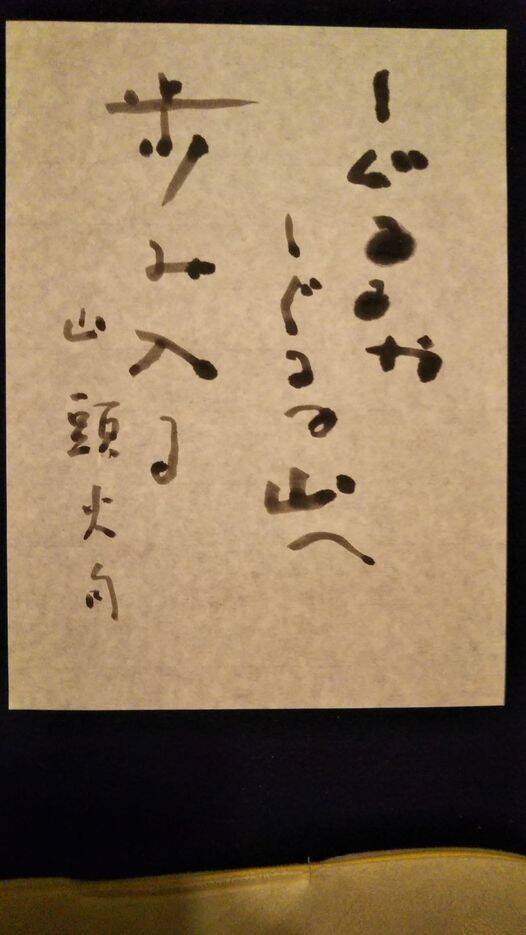 しぐるるや
しぐるる山へ
歩み入る
山頭火句